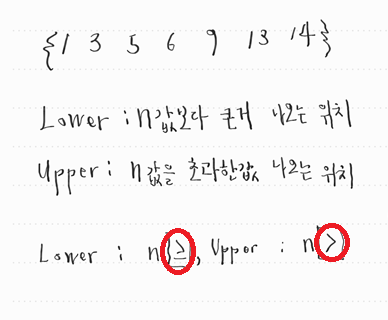 {1 3 5 6 9 13 14}
Lower : n값보다 큰게 나오는 위치
Upper : n값을 초과한값 나오는 위치
Lower : n(≥), Uppor : n(>)